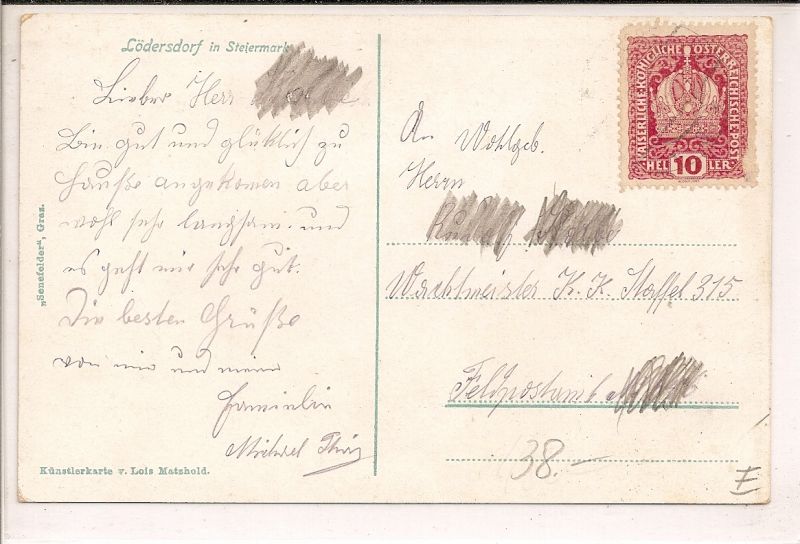 Lödersdorf in Steiermark
Lieber Herr
Bin gut und glüklich zu
Hauße angekomen aber
wohl sehr langsam. und
es geht mir sehr gut.
Die besten Grüße
von mir und meine
Familie
Michael
Künstlerkarte v. Lois Matzhold.
„Senefelder", Graz.
KAISERLICHE·KÖNIGLICHE·ÖSTERREICHISCHE·POST
HEL 10 LER
An Wohlgeb.
Herrn
Wachtmeister K. K. Staffel 315
Feldpostamt
38.–